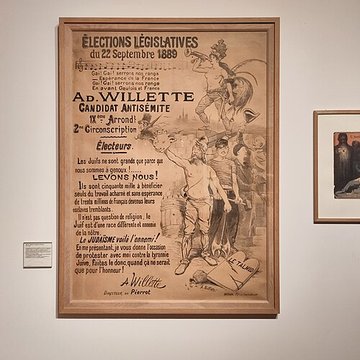 ÉLECTIONS LÉGISLATIVES
du 22 Septembre 1889
Gai! Gai! serrons nos rangs
Espérance de la France
Gai! Gai! serrons nos rangs
En avant Gaulois et Francs
AD. WILLETTE
CANDIDAT ANTISÉMITE
IXème Arrondt
2me Circonscription
Électeurs.
Les Juifs ne sont grands que parce que
nous sommes à genoux!....
LEVONS NOUS!
Ils sont cinquante mille à bénéficier
seuls du travail acharné et sans espérance
de trente millions de français devenus leurs
esclaves tremblants.
Il n'est pas question de religion, le
Juif est d'une race différente et ennemie
de la nôtre.
Le JUDAISME voilà l'ennemi!
En me présentant, je vous donne l'occasion
de protester avec moi contre la tyrannie
Juive. Faites le donc quand ça ne serait
que pour l'honneur!
A. Willette
Directeur du Pierrot
LE TALMUD
A. Willette